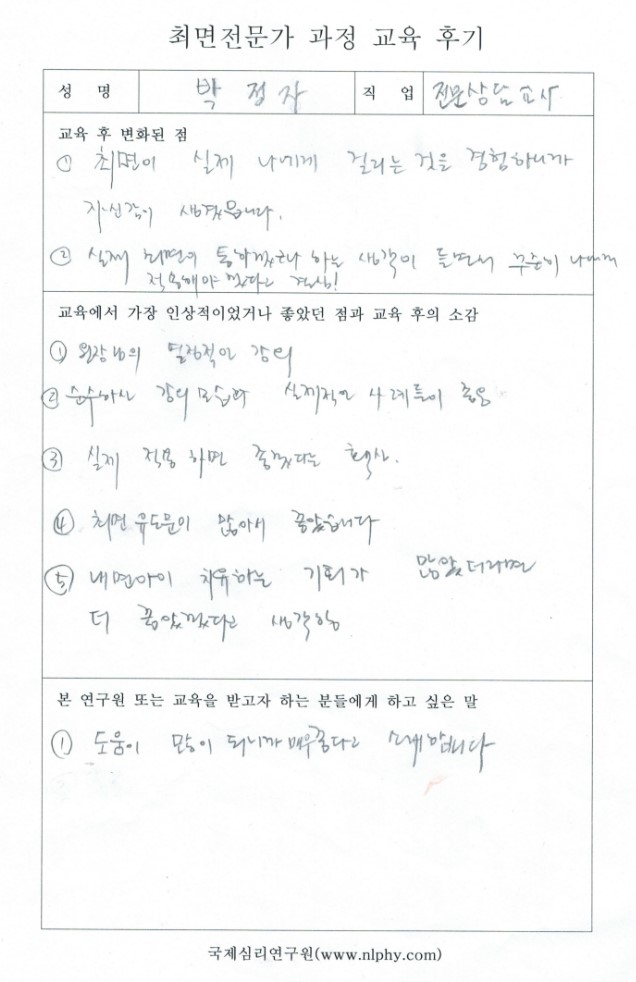 최면전문가 과정 교육 후기
성 명 박정자 직 업 전문상담교사
교육 후 변화된 점
① 최면이 실제 나에게 걸리는 것을 경험하니까
자신감이 생겼습니다.
② 실제 최면이 통하겠구나 하는 생각이 들면서 꾸준히
적용해야 겠다고 결심!
교육에서 가장 인상적이었거나 좋았던 점과 교육 후의 소감
① 원장님의 열정적인 강의
② 순수하신 강의 모습과 실제적인 사례들이 좋음
③ 실제 적용하면 좋겠다는 확신.
④ 최면 유도문이 많아서 좋았습니다
⑤ 내면아이 치유하는 기회가 많았더라면
더 좋았겠다고 생각함
본 연구원 또는 교육을 받고자 하는 분들에게 하고 싶은 말
① 도움이 많이 되니까 매우좋다고 소개합니다
국제심리연구원(www.nlphy.com)